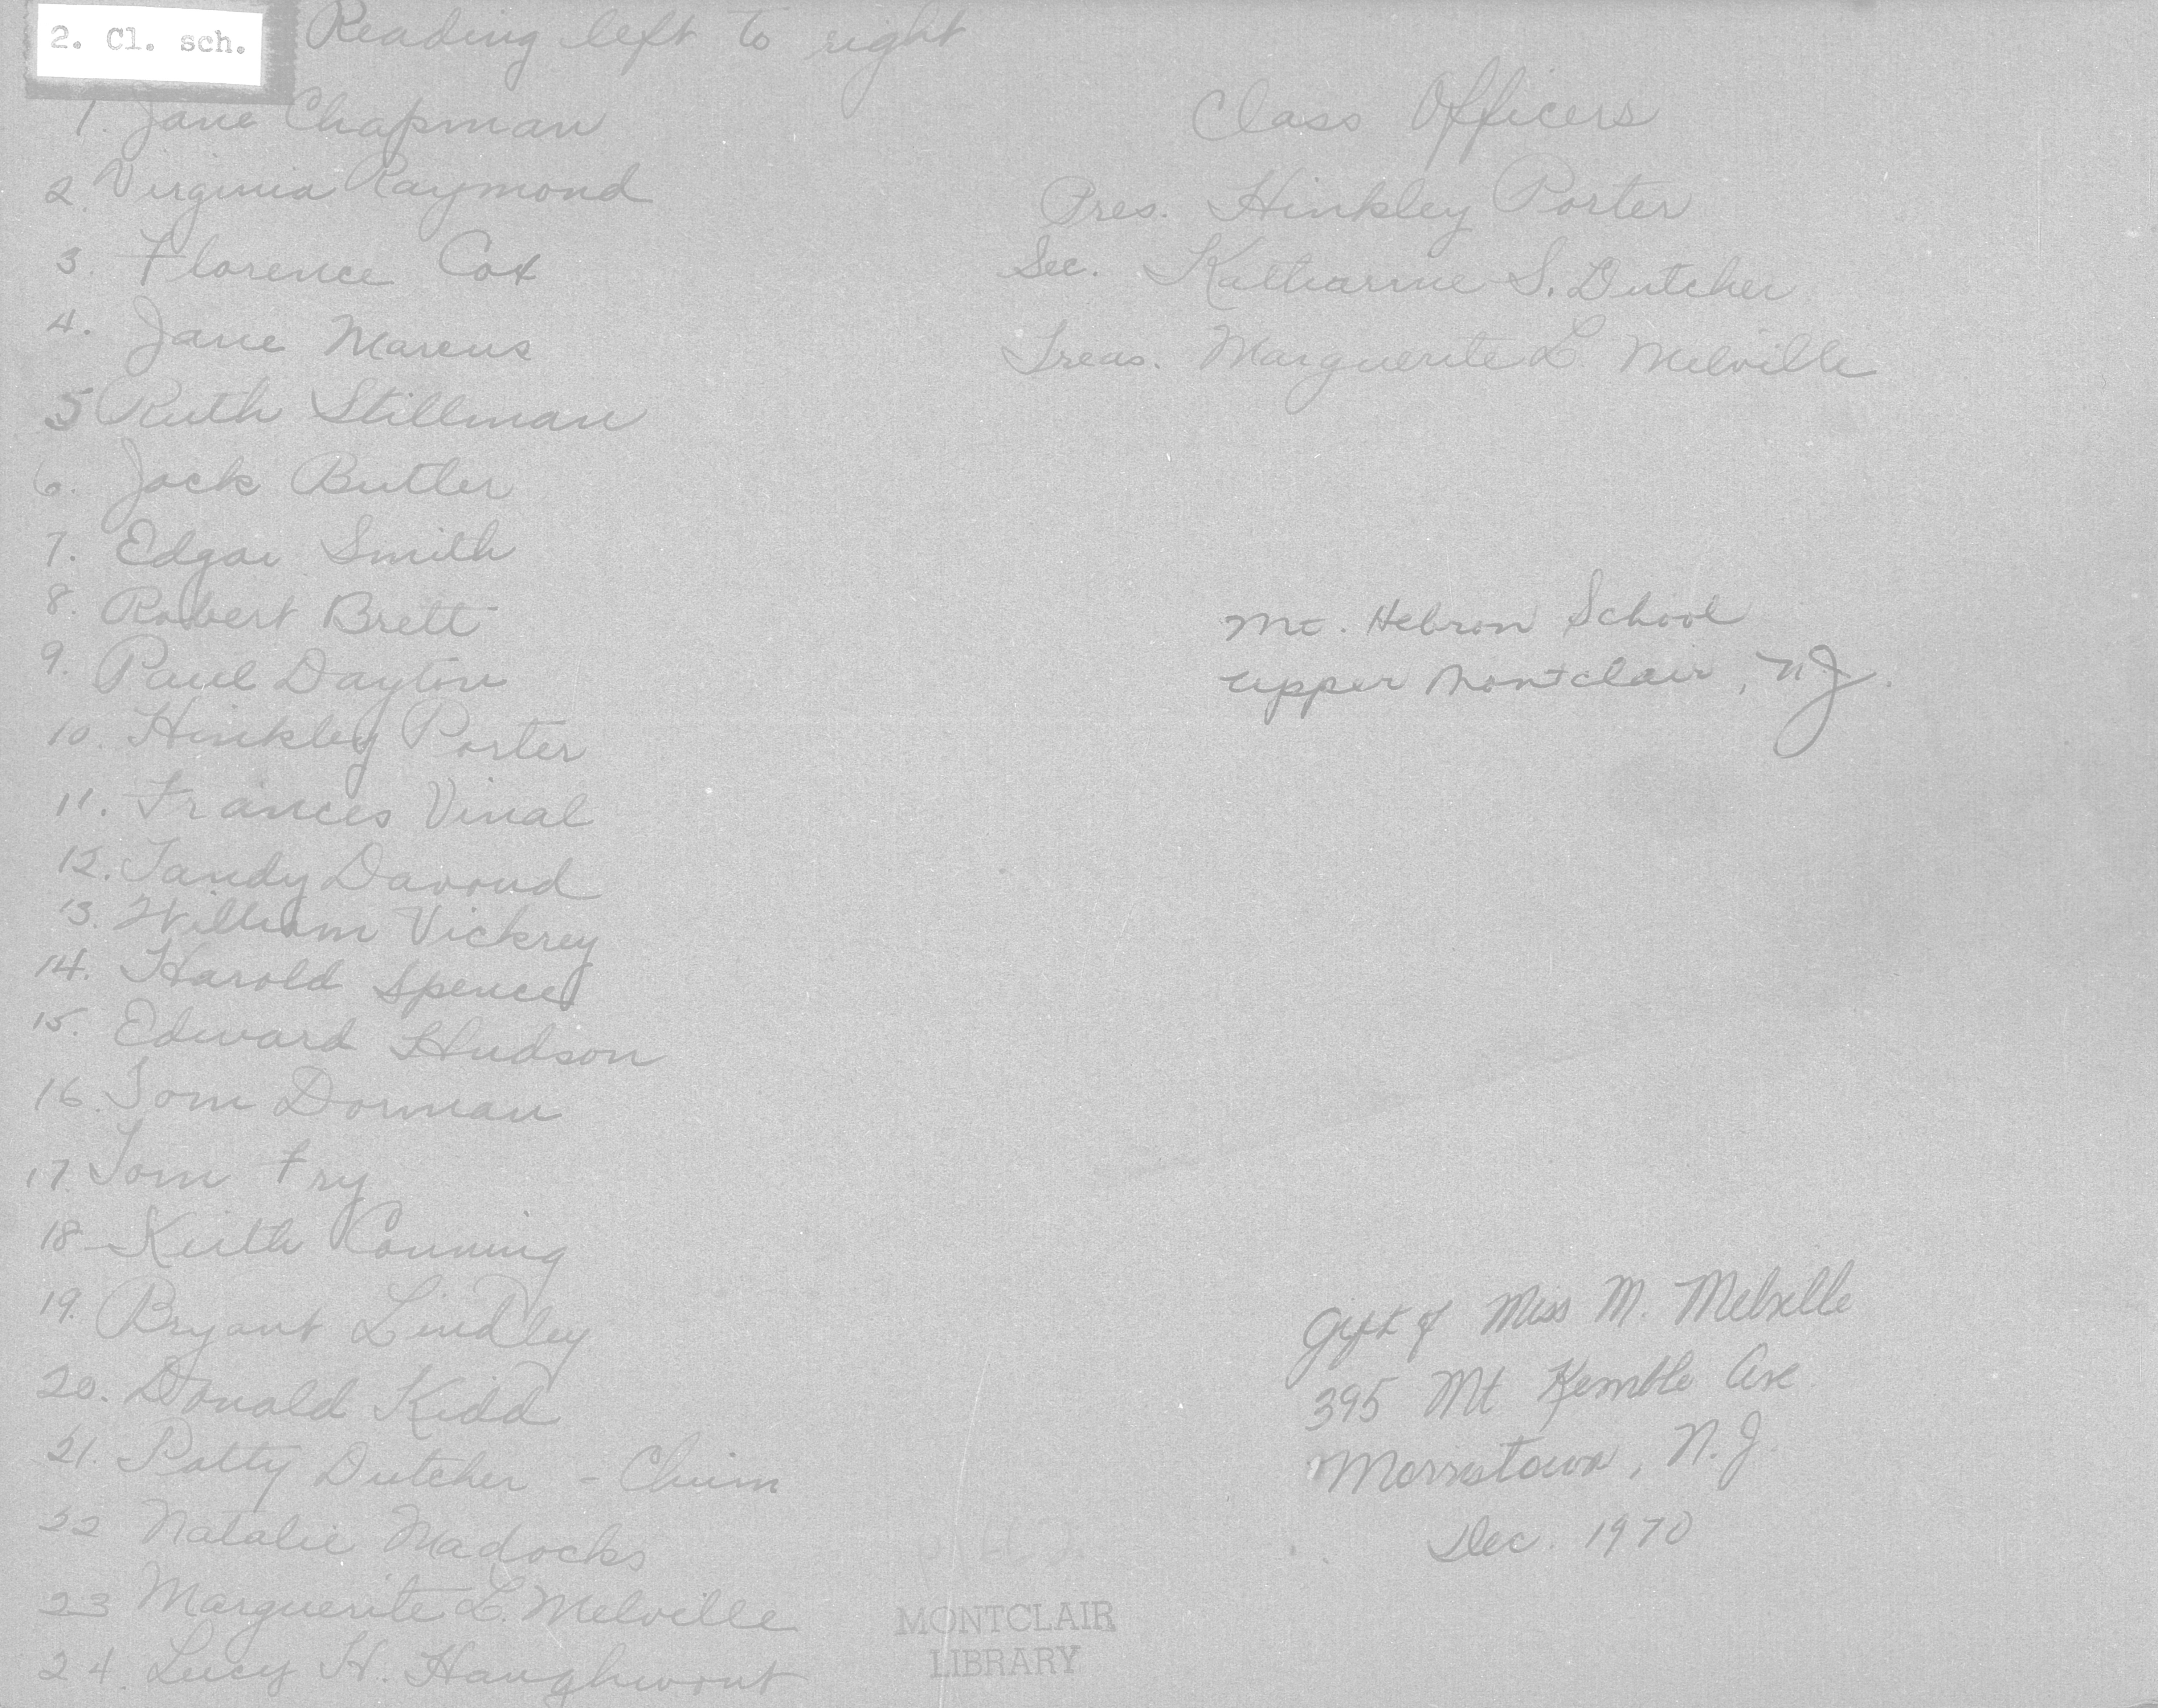 2. Cl. sch.
Reading left to right
1. Jane Chapman
2. Virginia Raymond
3. Florence Cox
4. Jane Marcus
5 Ruth Stillman
6. Jack Butler
7. Edgar Smith
8. Robert Brett
9. Paul Dayton
10. Hinkley Porter
11. Frances Vinal
12. Sandy Davoud
13. William Vickrey
14. Harold Spence
15. Edward Hudson
16. Tom Dorman
17. Tom Fry
18 Keith Conning
19. Bryant Lindley
20. Donald Kidd
21. Patty Dutcher -
22 Natalie Madocks
23 Marguerite L. Melville
24. Lucy H. Haughwout
Class Officers
Pres. Hinkley Porter
Sec. Katharine S. Dutcher
Treas. Marguerite L. Melville
Mt. Hebron School
Upper Montclair, N.J.
Gift of Miss M. Melville
395 Mt Kemble Ave
Morristown, N.J
Dec. 1970
MONTCLAIR
LIBRARY